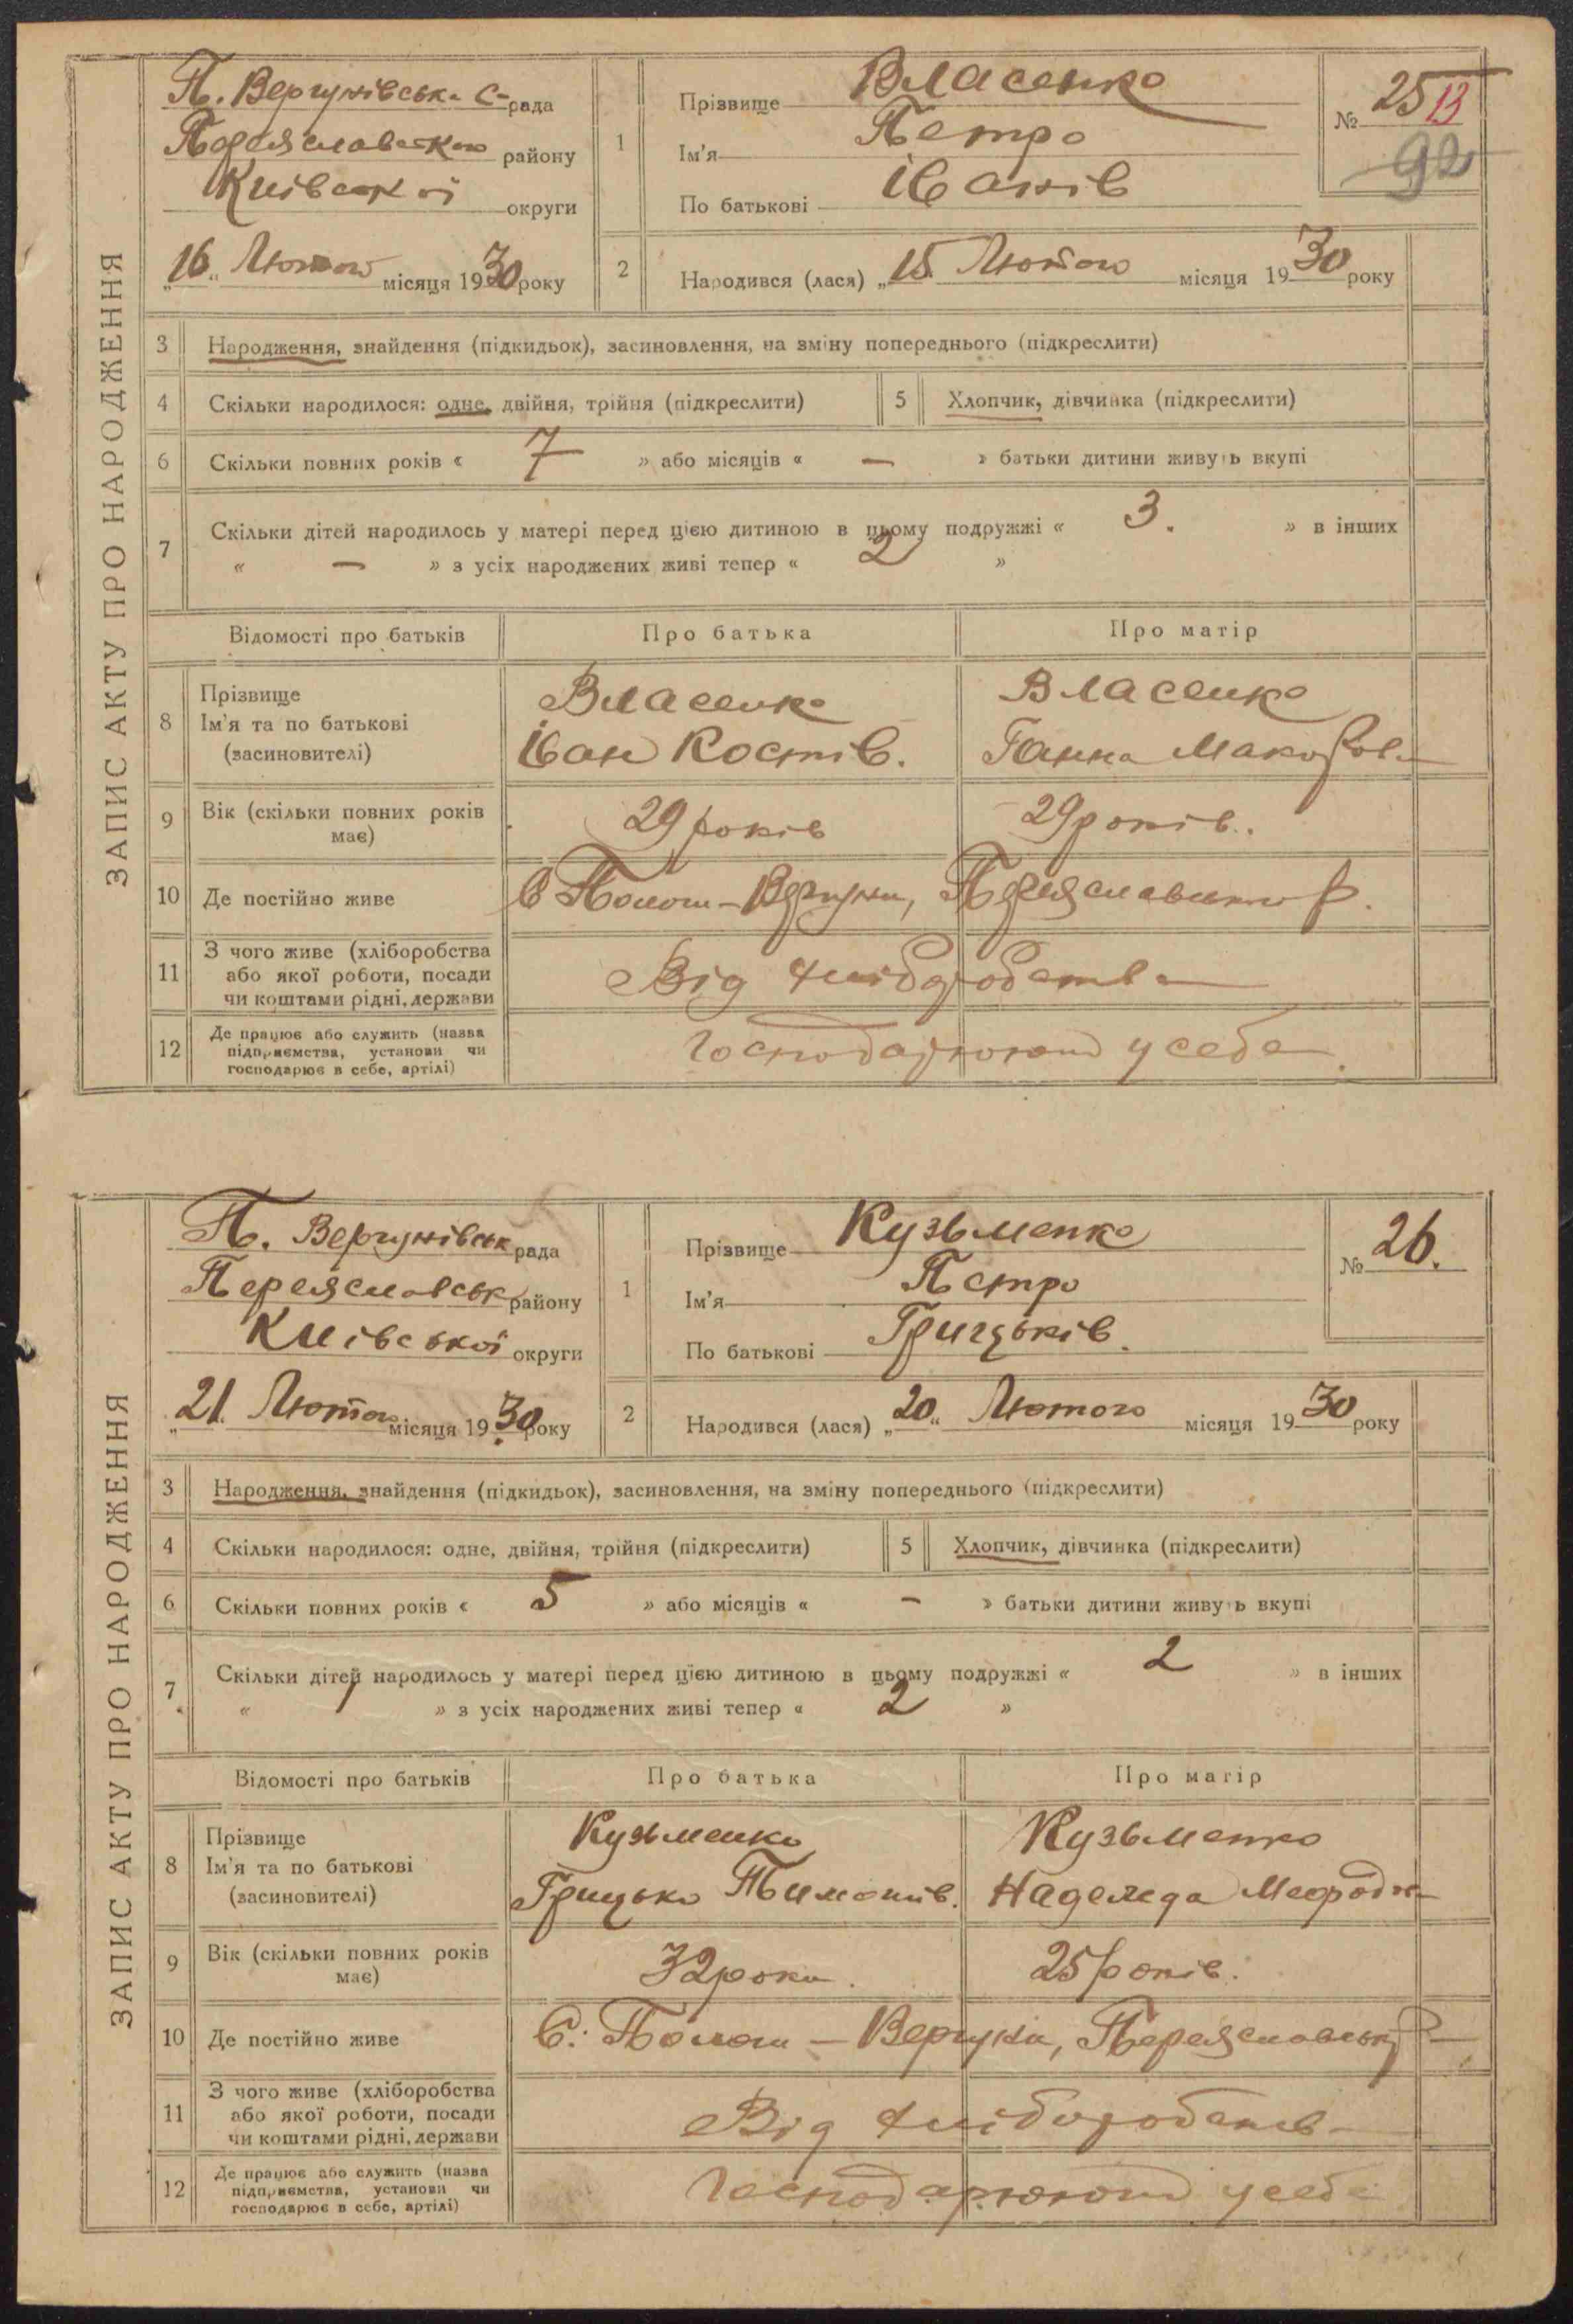 ЗАПИС АКТУ ПРО НАРОДЖЕННЯ
П. Вергунівська С-рада
Переяславського району
Київської округи
„16„ Лютого місяця 1930 року
1
Прізвище Власенко
Ім'я Петро
По батькові Іванів
№ 25 13
92
2
Народився (лася) „15„ Лютого місяця 1930 року
3 Народження, знайдення (підкидьок), засиновлення, на зміну попереднього (підкреслити)
4 Скільки народилося: одне, двійня, трійня (підкреслити) 5 Хлопчик, дівчинка (підкреслити)
6 Скільки повних років « 7 » або місяців « — » батьки дитини живуть вкупі
7 Скільки дітей народилось у матері перед цією дитиною в цьому подружжі « 3. » в інших
« — » з усіх народжених живі тепер « 2 »
Відомості про батьків Про батька Про матір
8 Прізвище
Ім'я та по батькові
(засиновителі)
Власенко
Іван Костів.
Власенко
Ганна
9 Вік (скільки повних років
має)
29 років 29 років.
10 Де постійно живе С Полош-Вергуни, Переяславського р.
11 З чого живе (хліборобства
або якої роботи, посади
чи коштами рідні, держави
Від хліборобства
12 Де працює або служить (назва
підприємства, установи чи
господарює в себе, артілі)
Господарюють у себе.
ЗАПИС АКТУ ПРО НАРОДЖЕННЯ
П. Вергунівськ рада
Переяславськ району
Київської округи
„21„ Лютого місяця 1930 року
1
Прізвище Кузьменко
Ім'я Петро
По батькові Грицьків.
№ 26.
2
Народився (лася) „20„ Лютого місяця 1930 року
3 Народження, знайдення (підкидьок), засиновлення, на зміну попереднього (підкреслити)
4 Скільки народилося: одне, двійня, трійня (підкреслити) 5 Хлопчик, дівчинка (підкреслити)
6 Скільки повних років « 5 » або місяців « — » батьки дитини живуть вкупі
7 Скільки дітей народилось у матері перед цією дитиною в цьому подружжі « 2 » в інших
« 1 » з усіх народжених живі тепер « 2 »
Відомості про батьків Про батька Про матір
8 Прізвище
Ім'я та по батькові
(засиновителі)
Кузьменко
Грицько
Кузьменко
Надежда
9 Вік (скільки повних років
має)
32 роки. 25 років.
10 Де постійно живе С. Полош – Вергуни, Переяславськ р
11 З чого живе (хліборобства
або якої роботи, посади
чи коштами рідні, держави
Від хліборобств
12 Де працює або служить (назва
підприємства, установи чи
господарює в себе, артілі)
Господарюють у себе